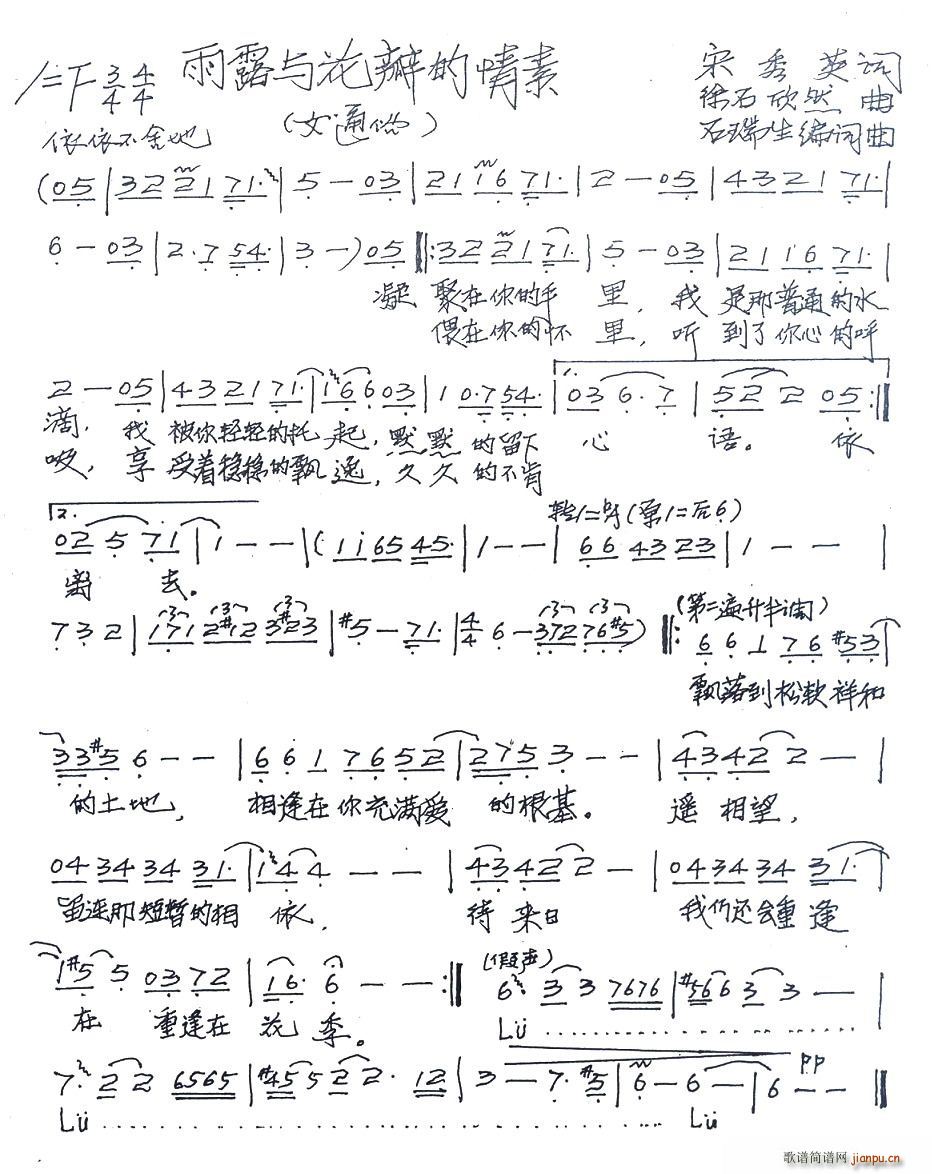 雨露与花瓣的情素
1=F 3/4 4/4
宋秀英词
徐石欣然曲
石瑞生编词曲
依依不舍地
(女通俗)
(05|32 21 71·|5 — 03|21 16 71·|2 — 05|43 21 71·|
6 — 03|2·7 54·|3 —)05‖:32 21 71·|5 — 03|21 16 71·|
凝聚在你的手里,我是那普通的水
偎在你的怀里,听到了你心的呼
2 — 05|43 21 71·|16 6 03|1 0·7 54·|1. 03 6·7|52 2 05:‖
滴,我被你轻轻的托起,默默的留下心语。依
吸,享受着稳稳的飘逸,久久的不肯
转1=(原1=后6)
2. 02 5 71|1 — —|(11 65 45·|1 — —|66 43 23|1 — —|
离去。
(第二遍升半调)
7 3 2|171 2#12 3#23|#5 — 71·|4/4 6 — 372 76#5)‖:6 6 1 76 #53|
飘落到松软祥和
33#5 6 — —|6 6 1 76 52|2753 — —|43 42 2 —|
的土地,相逢在你充满爱的根基。遥相望,
04 34· 34 31·|14 4 — —|43 42 2 —|04 34 34 31·|
虽连那短暂的相依,待来日我们还会重逢
1#5 5 03 72|16· 6 — —:‖
(假声)
6· 33 7676|#566 3 3 —|
在重逢在花季。
Lü
7· 22 6565|#455 2 2· 12|3 — 7·#5|6 — 6 —|6 — —‖
pp
Lü Lü
歌谱简谱网 jianpu.cn